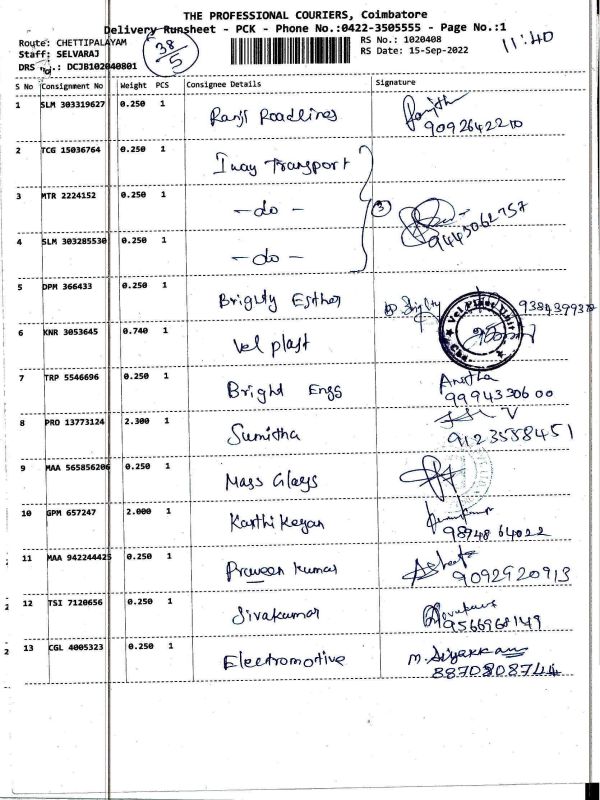 THE PROFESSIONAL COURIERS, Coimbatore
Delivery Runsheet - PCK - Phone No.:0422-3505555 - Page No.:1
Route: CHETTIPALAYAM
38/5
RS No.: 1020408
11:40
Staff: SELVARAJ
RS Date: 15-Sep-2022
DRS No.: DCJB102040801
S No Consignment No Weight PCS Consignee Details Signature
1 SLM 303319627 0.250 1 Ranji Roadlines Ranjith
9092642210
2 TCG 15036764 0.250 1 Inay Transport
3 MTR 2224152 0.250 1 - do - 3
9443062757
4 SLM 303285530 0.250 1 - do -
5 DPM 366433 0.250 1 Brighty Esther Brighty 9384399378
6 KNR 3053645 0.740 1 Vel plast Vel Plast Unit
7 TRP 5546696 0.250 1 Bright Engg Anitha
9994330600
8 PRO 13773124 2.300 1 Sumitha
9123558451
9 MAA 565856206 0.250 1 Mass Glays
10 GPM 657247 2.000 1 Karthikeyan
9874864022
11 MAA 942244425 0.250 1 Praveen Kumar
9092920913
12 TSI 7120656 0.250 1 Sivakumar
9566968149
13 CGL 4005323 0.250 1 Electromotive
8870808744